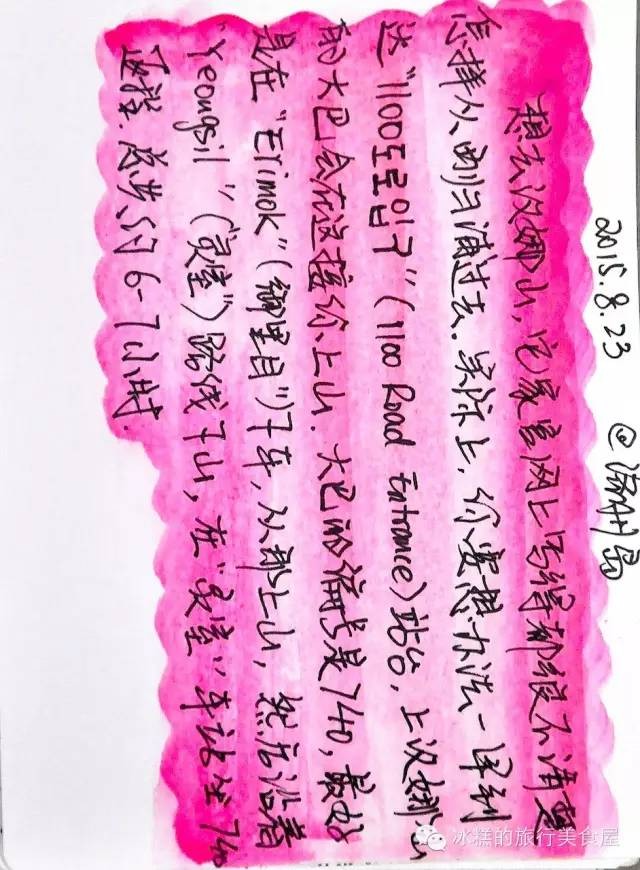 2015.8.23 @济州岛
想去汉娜山,它家官网上写得都很不清楚
怎样从西归浦过去.实际上,你要想办法一早到
达"1100도로입구"(1100 Road Entrance)站台,上汉娜山
的大巴会在这接你上山.大巴的编号是740,最好
是在"Erimok"(御里目)下车,从那上山,然后沿着
"Yeongsil"("灵室")路线下山,在"灵室"车站坐740
返程.总共约6-7小时.
冰糕的旅行美食屋